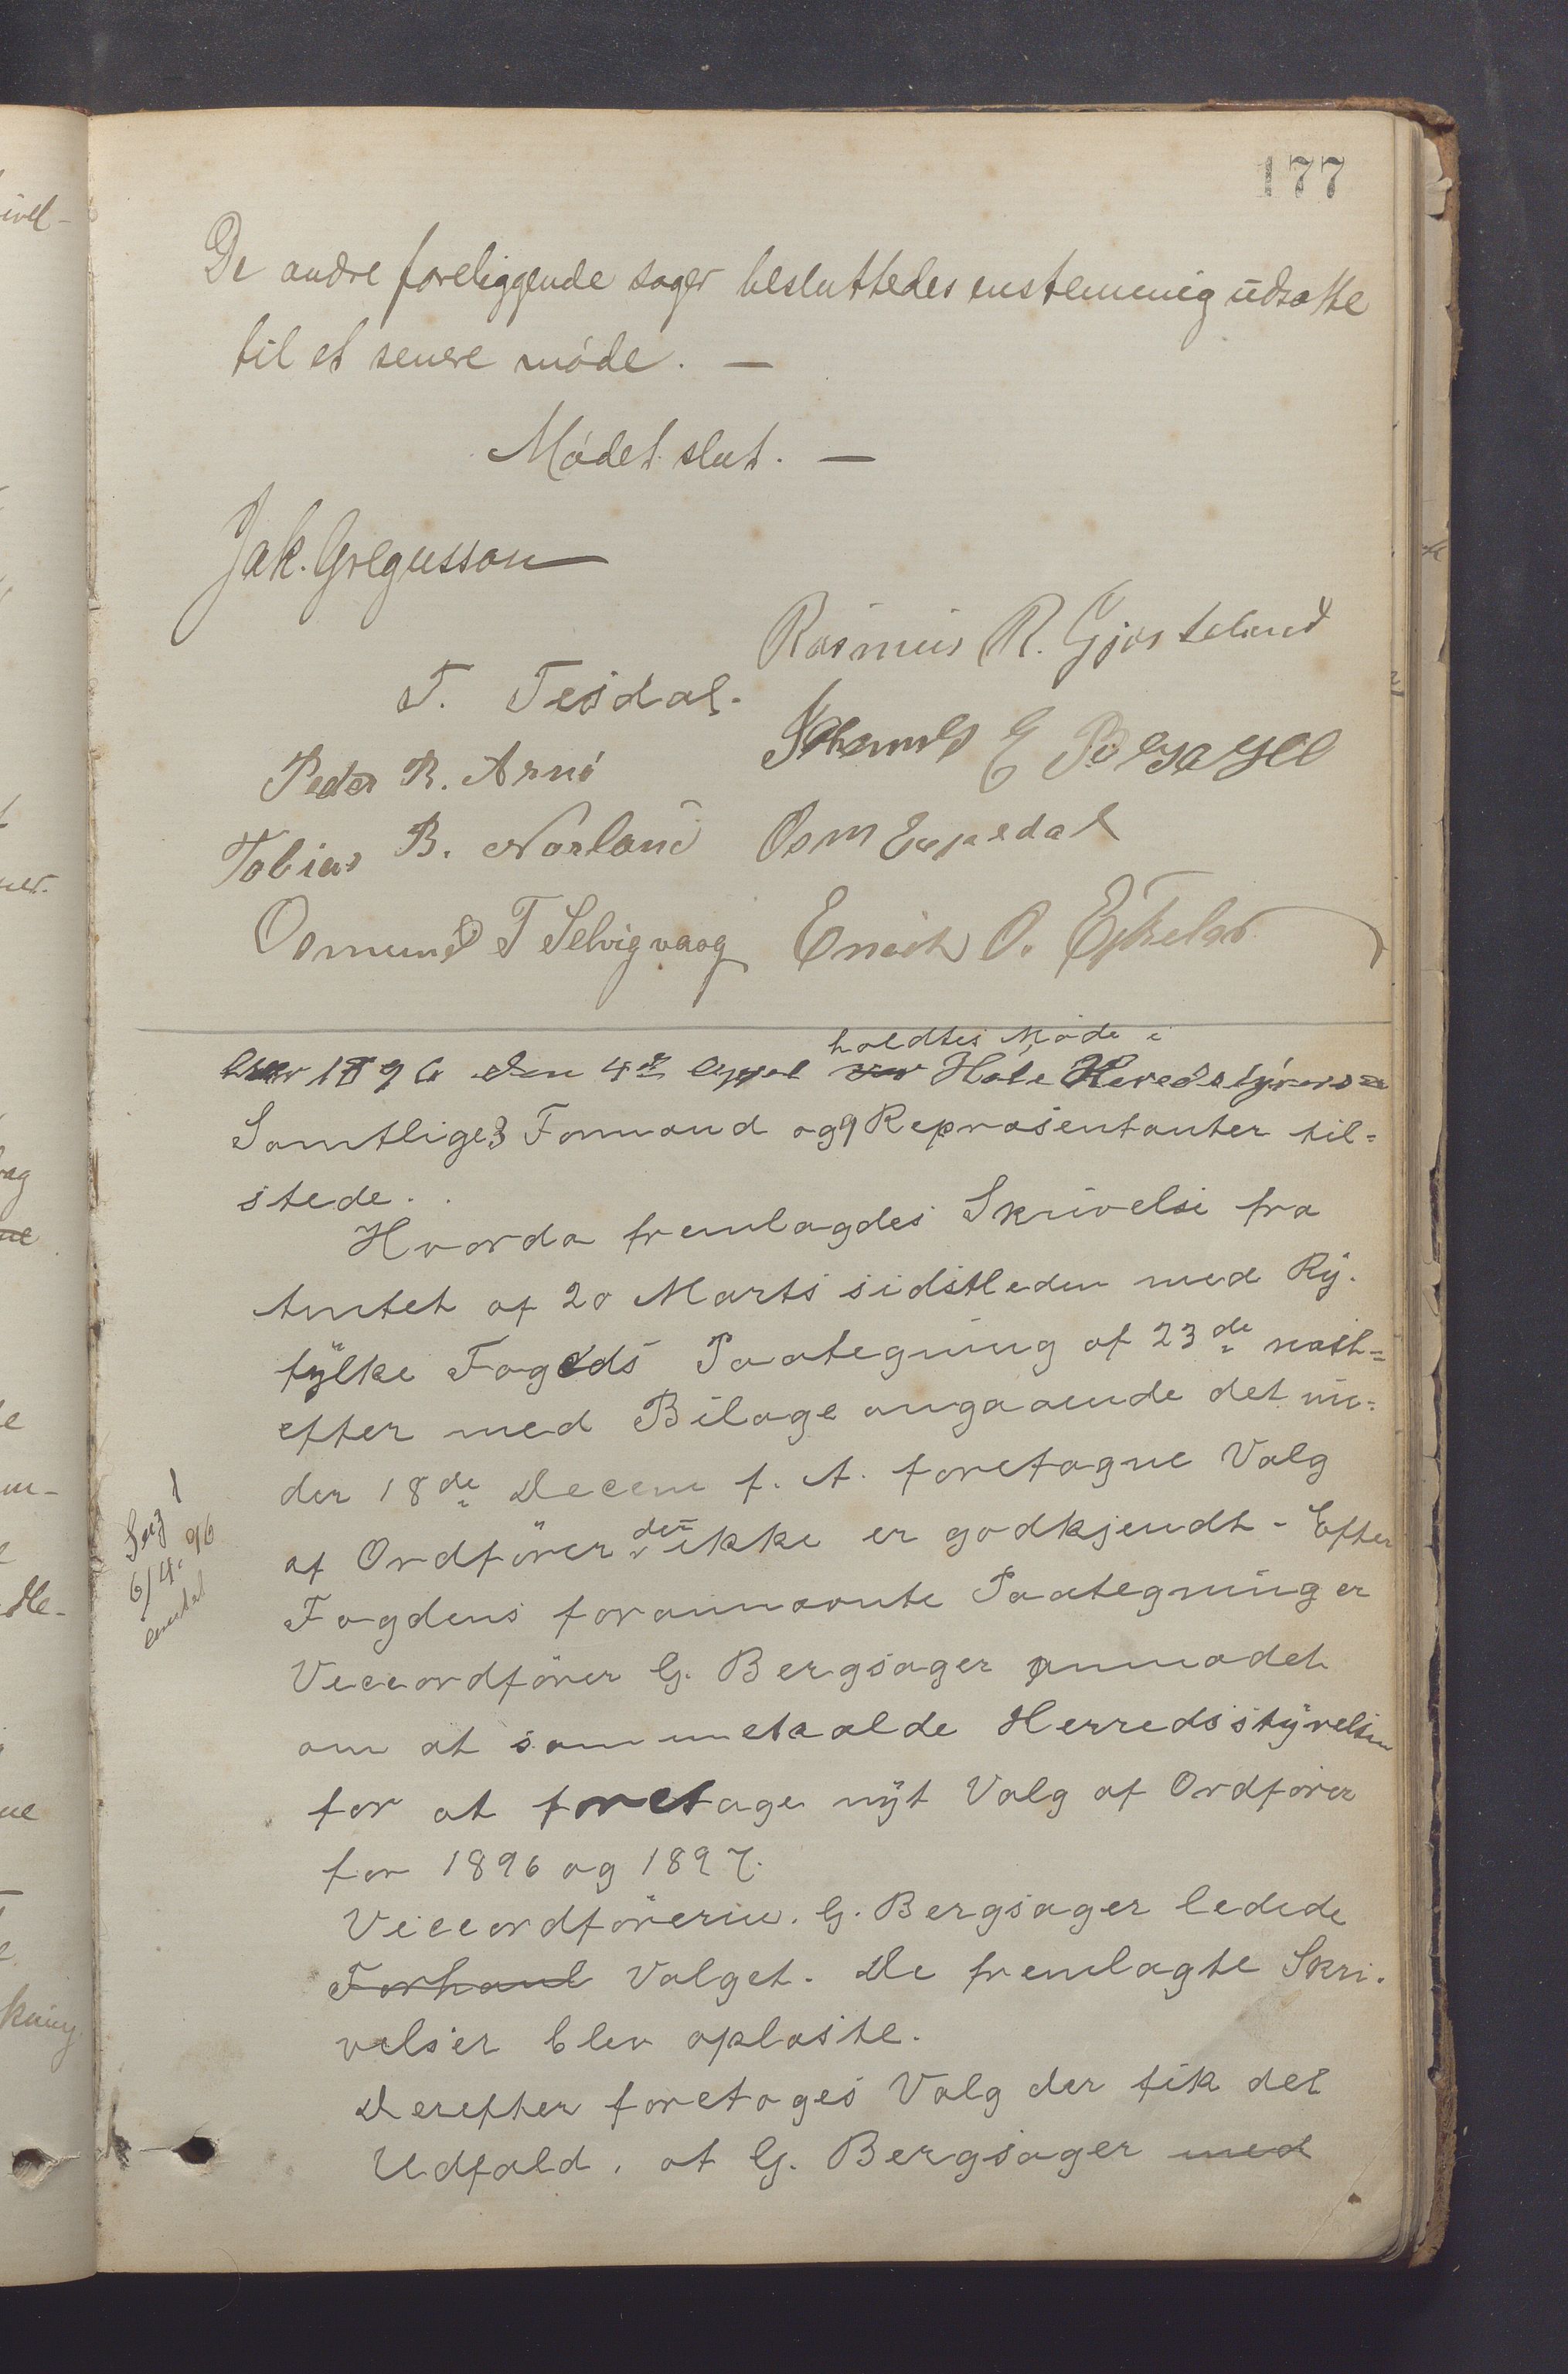 177
De andre foreliggende sager besluttedes enstemmig udsatte
til et senere møde. —
Mødet slut. —
Jak. Gregussen
Rasmus R. Gjøsteland
T. Tesdal.
E Bergagel
Peder R. Arnø
Tobias B. Norland
Osm Espedal
Osmund T Selvigvaag
Enoch O.
holdtes Møde i
Aar 1896 den 4de April var Høle Heredstyrerse
Samtlige 3 Formænd og 9 Repræsentanter til=
stede.
Hvorda fremlagdes Skrivelse fra
Amtet af 20 Marts sidstleden med Ry-
fylke Fogeds Paategning af 23de næst=
efter med Bilage angaaende det un=
der 18de Decem f. A. foretagne Valg
af Ordfører der ikke er godkjendt - Efter
Fogdens forannævnte Paategning er
Viceordfører G. Bergsager anmodet
om at sammekalde Herredsstyrelsen
for at foretage nyt Valg af Ordfører
for 1896 og 1897.
Viceordføreren. G. Bergsager ledede
Forhand Valget. De fremlagte Skri-
velser blev oplæste.
Derefter foretoges Valg der fik det
Udfald, at G. Bergsager med
1
6/4. 96